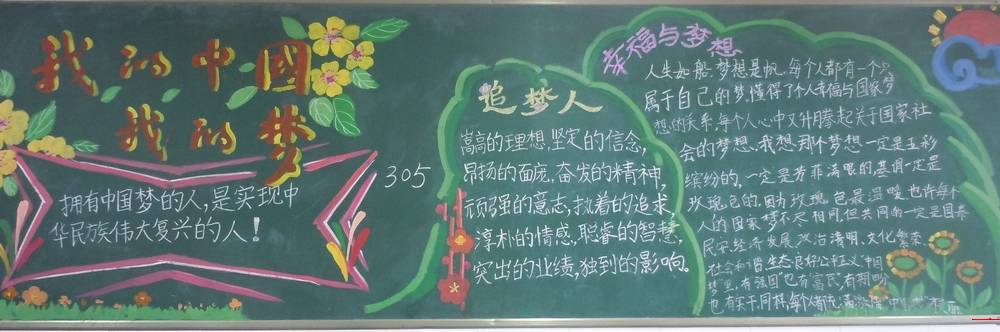 我的中国
我的梦
拥有中国梦的人,是实现中
华民族伟大复兴的人!
305
追梦人
嵩高的理想,坚定的信念,
昂扬的面庞,奋发的精神,
顽强的意志,执着的追求,
淳朴的情感,聪睿的智慧,
突出的业绩,独到的影响。
幸福与梦想
人生如船,梦想是帆,每个人都有一个
属于自己的梦,懂得了个人幸福与国家梦
想的关系,每个人心中又升腾起关于国家社
会的梦想,我想那个梦想一定是五彩
缤纷的,一定是芳菲满眼的基调一定是
玫瑰色的,因为玫瑰色最温暖,也许每个
人的国家梦不尽相同但共同的一定是国泰
民安,经济发展,政治清明,文化繁荣
社会和谐,生态良好公征义中国
梦里,有强国也有富民,有期盼
也有实干同样,每个